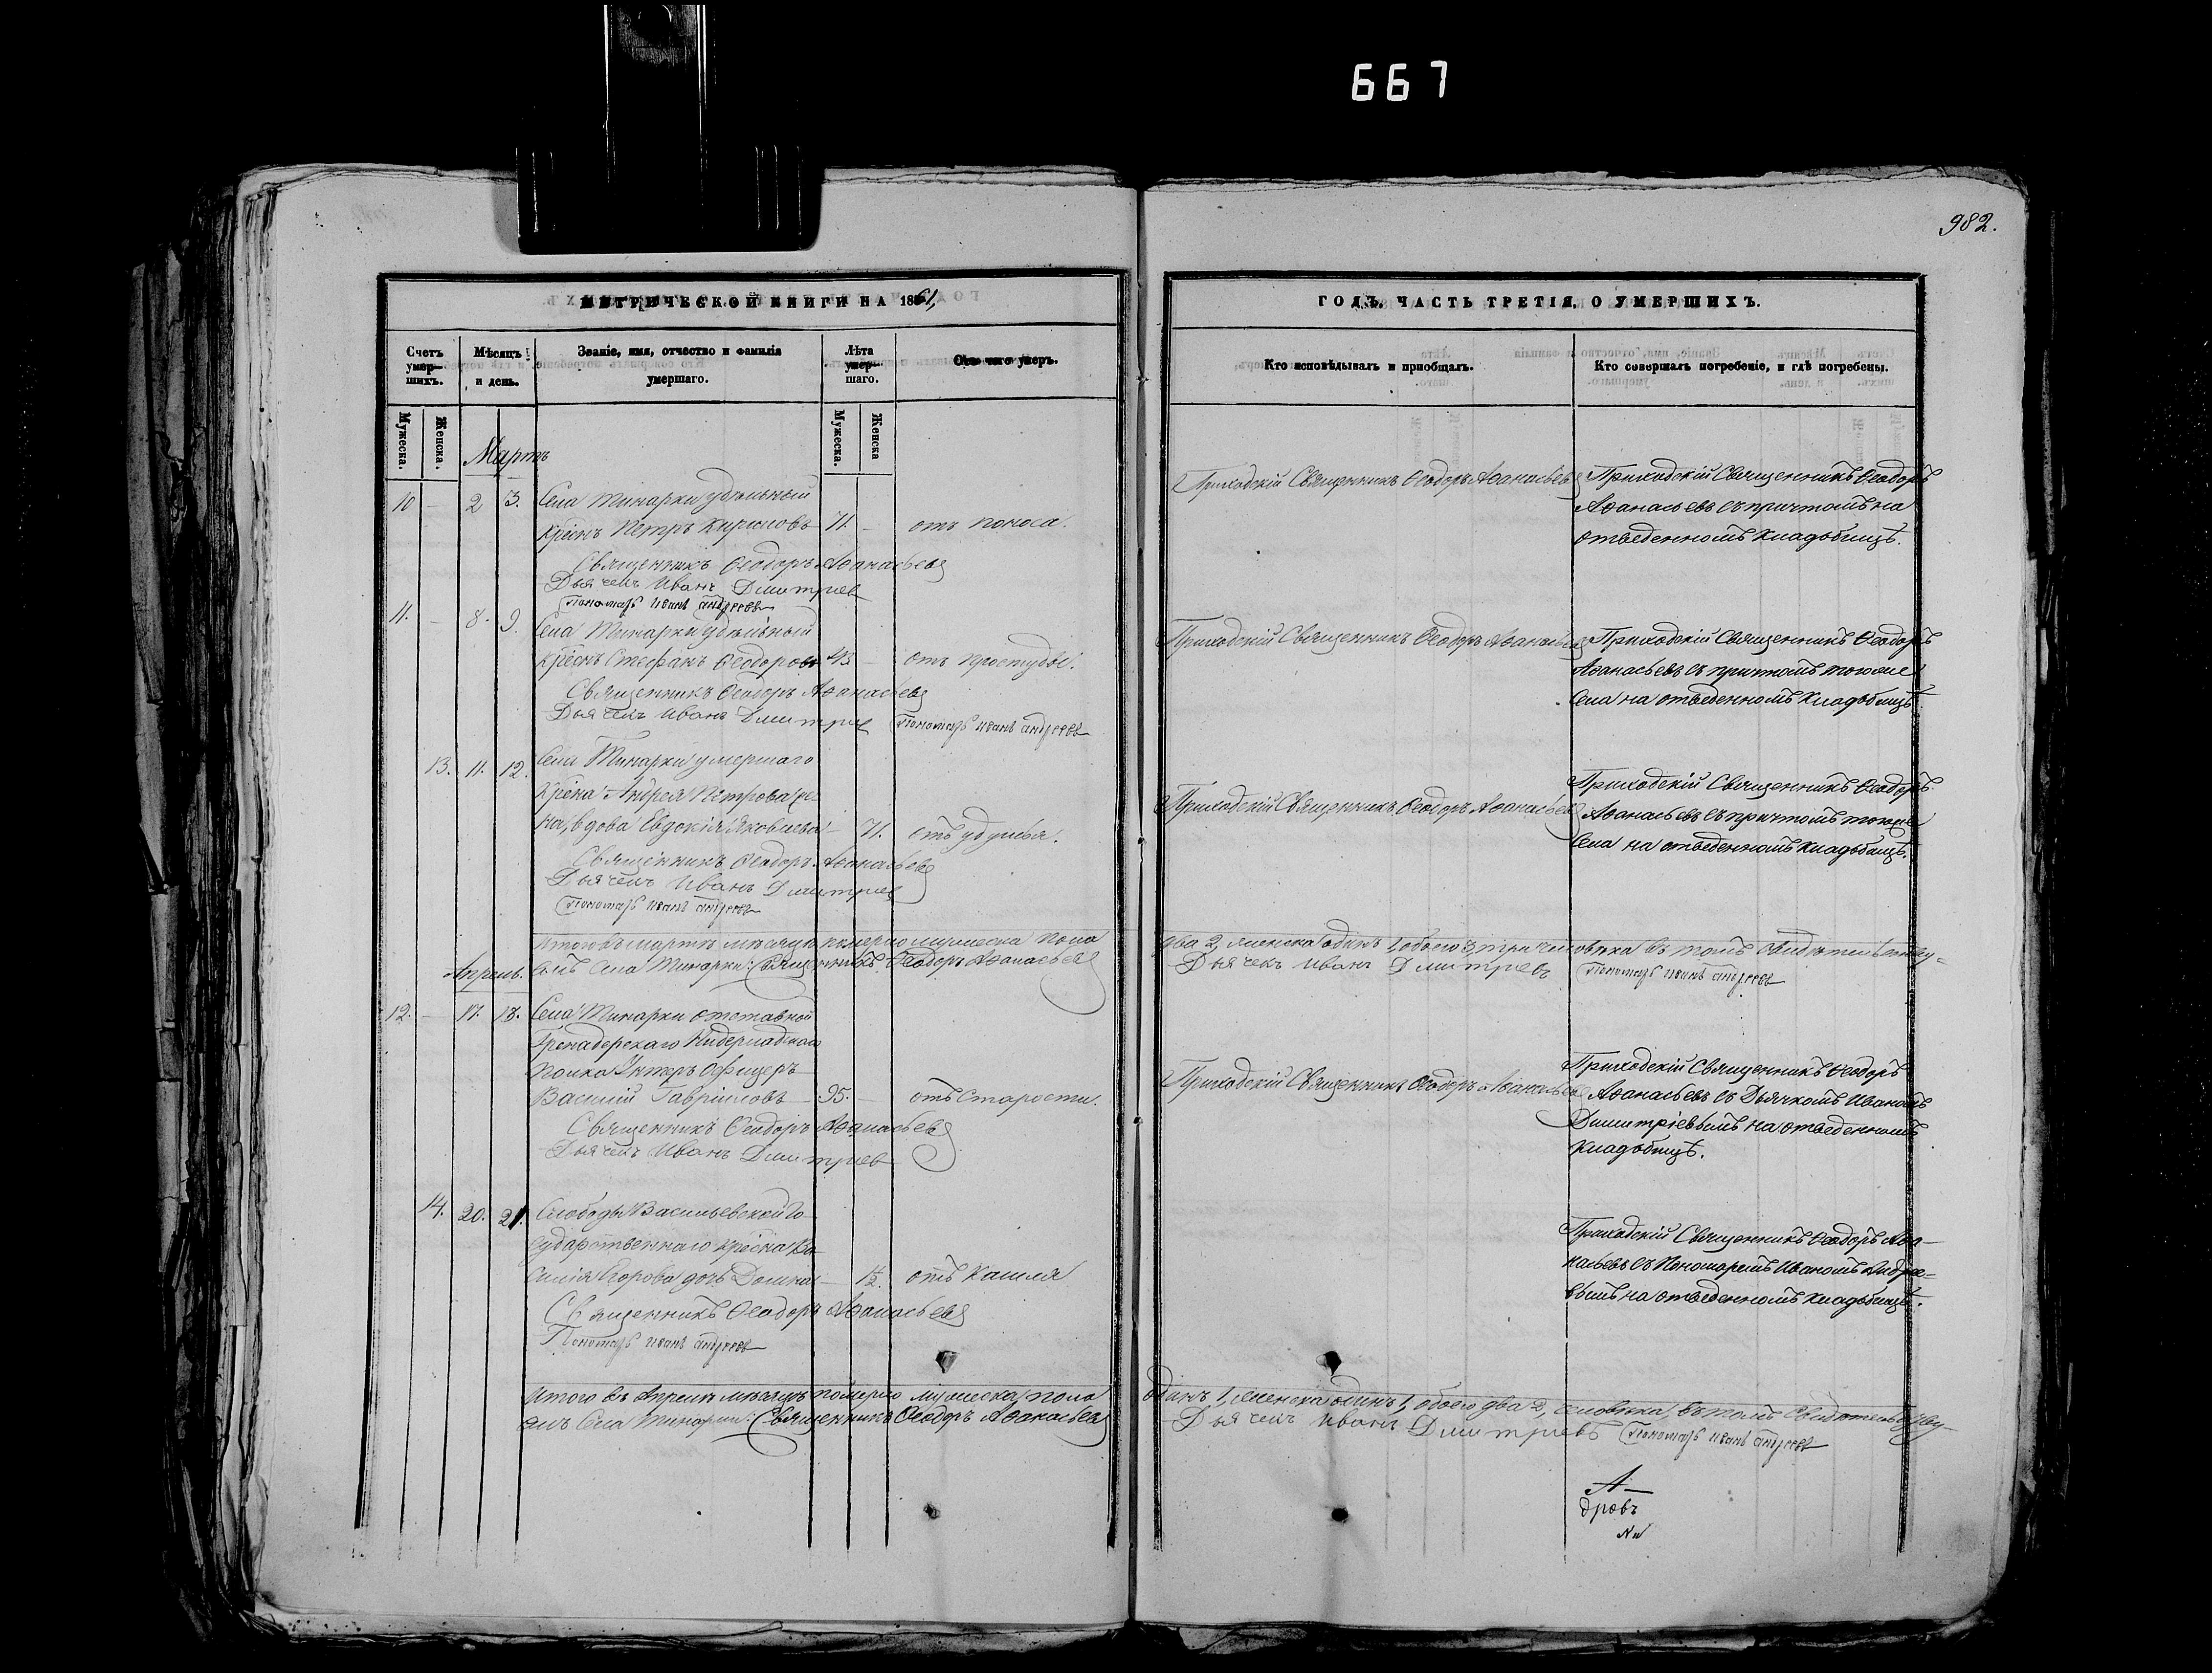 667
982.
МЕТРИЧЕСКОЙ КНИГИ НА 1861,
ГОДЪ, ЧАСТЬ ТРЕТІЯ, О УМЕРШИХЪ.
Счетъ умершихъ.
Мѣсяцъ и день.
Званіе, имя, отчество и фамилія умершаго.
Лѣта умершаго.
Отъ чего умеръ.
Кто исповѣдывалъ и пріобщалъ.
Кто совершалъ погребеніе, и гдѣ погребены.
Мужеска.
Женска.
Мужеска.
Женска
Мартъ
10 - 2 3. Села Тинарки удѣльный
крѣснъ Петръ Кириловъ 71. - отъ поноса.
Священникъ Ѳеодоръ Аѳанасьевъ
Дьячекъ Иванъ Дмитриев
Пономарь Иванъ Андреевъ
Приходскій Священникъ Ѳеодоръ Аѳанасьевъ
Приходскій Священникъ Ѳеодоръ
Аѳанасьевъ съ причтомъ на
отведенномъ кладбищѣ.
11. - 8. 9. Села Тинарки удѣльный
крѣснъ Стефанъ Ѳеодоровъ 43 - отъ простуды.
Священникъ Ѳеодоръ Аѳанасьевъ
Дьячекъ Иванъ Дмитрие Пономарь Иванъ Андреевъ
Приходскій Священникъ Ѳеодоръ Аѳанасьевъ
Приходскій Священникъ Ѳеодоръ
Аѳанасьевъ съ причтомъ тогоже
Села на отведенномъ кладбищѣ
13. 11. 12. Села Тинарки умершаго
крѣсна Андрея Петрова же-
на, вдова Евдокія Яковлева - 71. отъ удушья.
Священникъ Ѳеодоръ Аѳанасьевъ
Дьячекъ Иванъ Дмитриев
Пономарь Иванъ Андреевъ
Приходскій Священникъ Ѳеодоръ Аѳанасьевъ
Приходскій Священникъ Ѳеодоръ
Аѳанасьевъ съ причтомъ тогоже
Села на отведенномъ кладбищѣ.
Итого въ мартѣ мѣсяцѣ померло мужеска пола
два 2, женска одинъ 1, обоего 3, три человѣка въ томъ свидѣтельству-
емъ Села Тинарки: Священникъ Ѳеодоръ Аѳанасьевъ
Дьячекъ Иванъ Дмитриевъ Пономарь Иванъ Андреевъ
Апрель.
12. - 17. 18. Села Тинарки отставной
Гренадерскаго Нидерладскаго
полка Унтеръ Офицеръ
Василий Гавриловъ 95. - отъ Старости.
Священникъ Ѳеодоръ Аѳанасьевъ
Дьячекъ Иванъ Дмитриев
Приходскій Священникъ Ѳеодоръ Аѳанасьевъ
Приходскій Священникъ Ѳеодоръ
Аѳанасьевъ съ Дьячкомъ Иваномъ
Димитріевымъ на отведенномъ
кладбищѣ.
14. 20. 21. Слободы Васильевской го-
сударственнаго крѣсна Ва-
силія Егорова дочь Домна - 1½. отъ кашля
Священникъ Ѳеодоръ Аѳанасьевъ
Пономарь Иванъ Андреевъ
Приходскій Священникъ Ѳеодоръ Аѳа-
насьевъ съ Пономаремъ Иваномъ Андрее-
вымъ на отведенномъ кладбищѣ.
Итого въ Апрелѣ мѣсяцѣ померло мужеска пола
одинъ 1, женска одинъ 1, обоего два 2, человѣка, въ томъ свидѣтельству-
емъ Села Тинарки: Священникъ Ѳеодоръ Аѳанасьевъ
Дьячекъ Иванъ Дмитриевъ Пономарь Иванъ Андреевъ
А-
дровъ